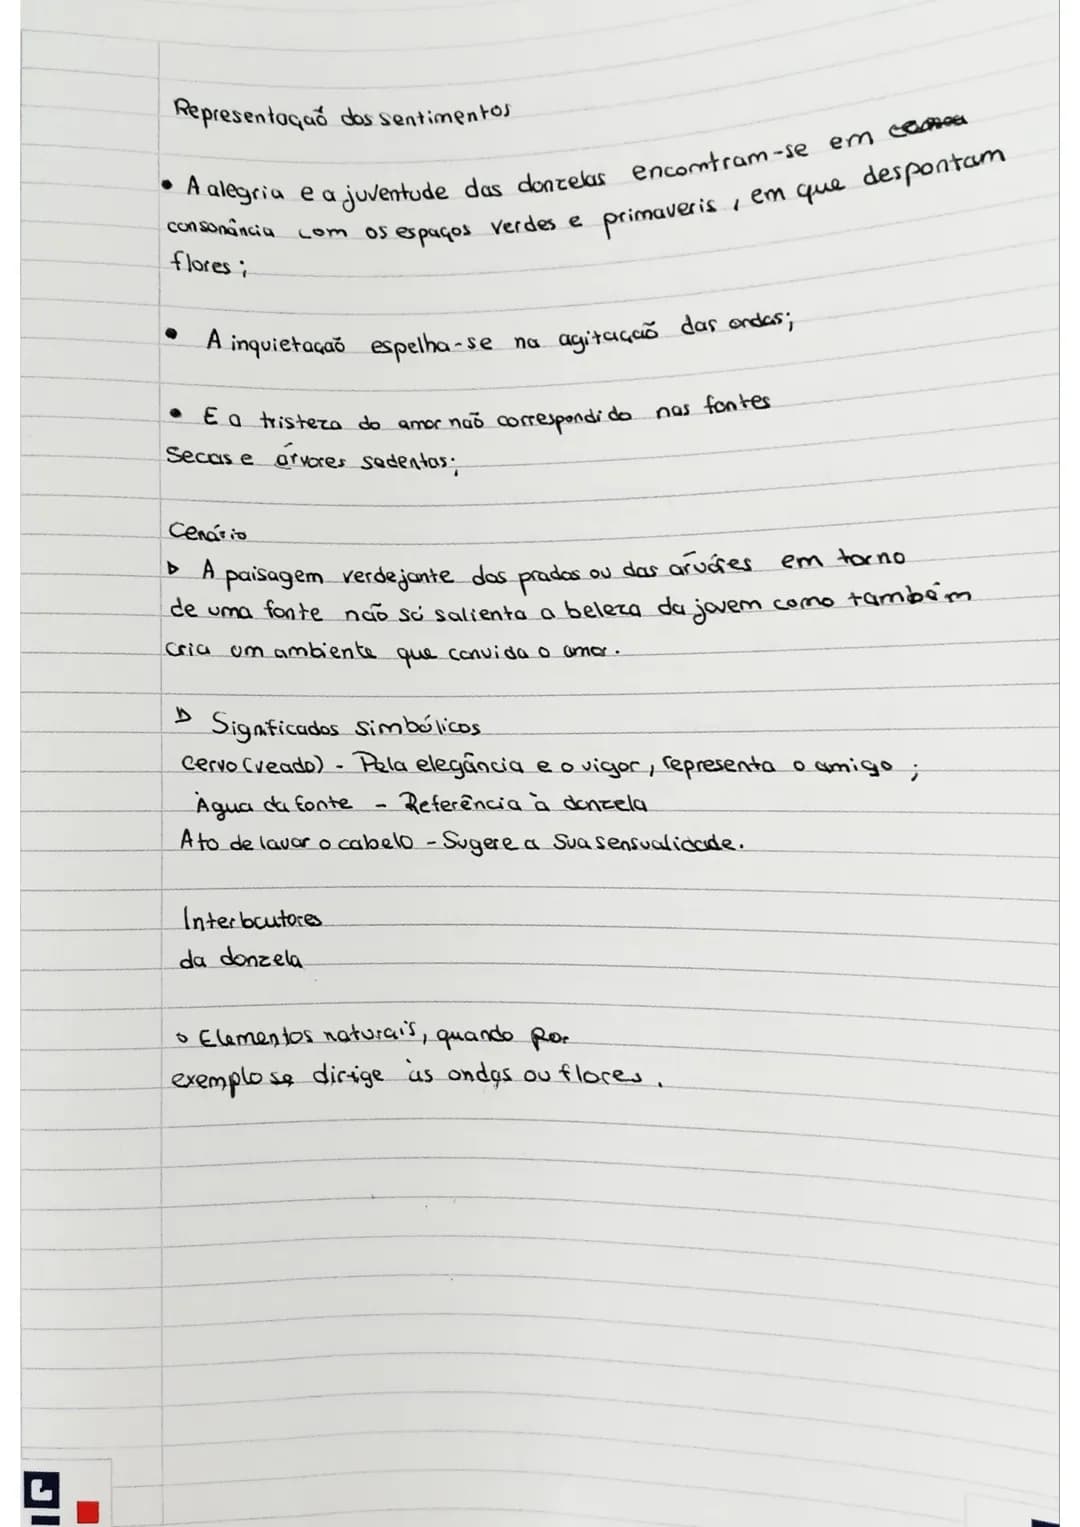 Representação dos sentimentos
• A alegria e a juventude das donzelas encomtram-se em
consonância com os espaços verdes e primaveris, em que despontam
flores;
• A inquietação espelha-se na agitação das ondas;
• E a tristeza do amor não correspondido nas fontes
Secas e árvores sedentas;
Cenário
▷ A paisagem verdejante dos prados ou das árvores em torno
de uma fonte não só salienta a beleza da jovem como também
cria um ambiente que convida o amor.
▷ Signficados simbólicos
Cervo (veado) - Pela elegância e o vigor, representa o amigo;
Água da fonte - Referência à donzela
Ato de lavar o cabelo - Sugere a Sua sensualidade.
Interlocutores
da donzela
• Elementos naturais, quando por
exemplo se dirige às ondas ou flores.